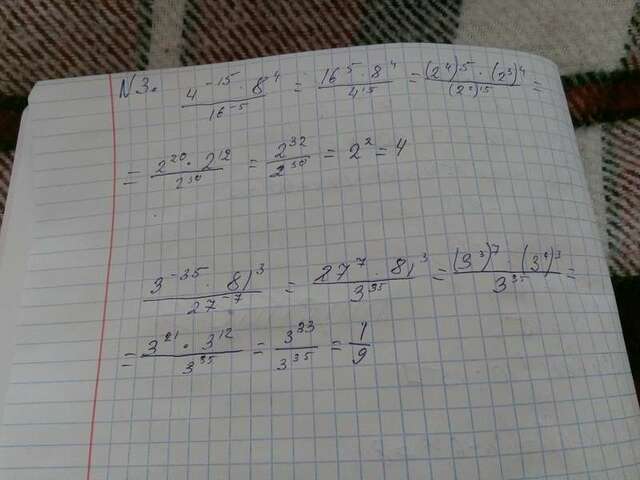 N3. 4^-15 · 8^4 / 16^-5 = 16^5 · 8^4 / 4^15 = (2^4)^5 · (2^3)^4 / (2^2)^15 =
= 2^20 · 2^12 / 2^30 = 2^32 / 2^30 = 2^2 = 4
3^-35 · 81^3 / 27^-7 = 27^7 · 81^3 / 3^35 = (3^3)^7 · (3^4)^3 / 3^35 =
= 3^21 · 3^12 / 3^35 = 3^33 / 3^35 = 1/9